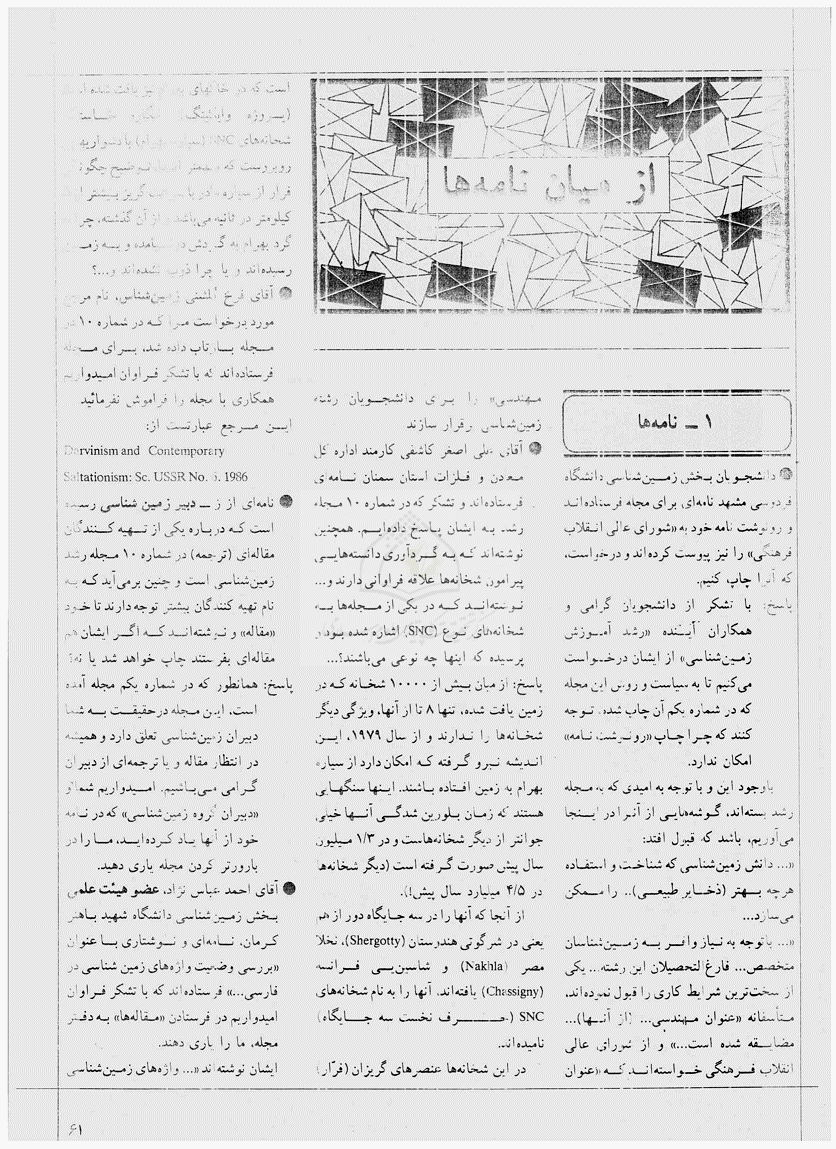 از میان نامه‌ها
۱ ــ نامه‌ها
دانشجویان بخش زمین‌شناسی دانشگاه
فردوسی مشهد نامه‌ای برای مجله فرستاده‌اند
و رونوشت نامه خود به «شورای عالی انقلاب
فرهنگی» را نیز پیوست کرده‌اند و درخواست،
که آنرا چاپ کنیم.
پاسخ: با تشکر از دانشجویان گرامی و
همکاران آینده «رشد آموزش
زمین‌شناسی» از ایشان درخواست
می‌کنیم تا به سیاست و روش این مجله
که در شماره یکم آن چاپ شده، توجه
کنند که چرا چاپ «رونوشت نامه»
امکان ندارد.
باوجود این و با توجه به امیدی که به مجله
رشد بسته‌اند، گوشه‌هایی از آنرا در اینجا
می‌آوریم، باشد که قبول افتد:
«... دانش زمین‌شناسی که شناخت و استفاده
هرچه بهتر (ذخایر طبیعی).. را ممکن
می‌سازد...
«... باتوجه به نیاز وافر به زمین‌شناسان
متخصص... فارغ‌التحصیلان این رشته... یکی
از سخت‌ترین شرایط کاری را قبول نموده‌اند،
متأسفانه «عنوان مهندسی... (از آنها)...
مضایقه شده است...» و از شورای عالی
انقلاب فرهنگی خواسته‌اند که «عنوان
مهندسی» را برای دانشجویان رشته
زمین‌شناسی برقرار سازند
آقای علی اصغر کاشفی کارمند اداره کل
معادن و فلزات استان سمنان نامه‌ای
فرستاده‌اند و تشکر که در شماره ۱۰ مجله
رشد به ایشان پاسخ داده‌ایم. همچنین
نوشته‌اند که به گردآوری دانسته‌هایی
پیرامون شخانه‌ها علاقه فراوانی دارند و...
نوشته‌اند که در یکی از مجله‌ها به
شخانه‌های نوع (SNC) اشاره شده بود و
پرسیده که اینها چه نوعی می‌باشند؟...
پاسخ: از میان بیش از ۱۰۰۰۰ شخانه که در
زمین یافت شده، تنها ۸ تا از آنها، ویژگی دیگر
شخانه‌ها را ندارند و از سال ۱۹۷۹، این
اندیشه نیرو گرفته که امکان دارد از سیاره
بهرام به زمین افتاده باشند. اینها سنگهایی
هستند که زمان بلورین شدگی آنها خیلی
جوانتر از دیگر شخانه‌هاست و در ۱/۳ میلیون
سال پیش صورت گرفته است (دیگر شخانه‌ها
در ۴/۵ میلیارد سال پیش!).
از آنجا که آنها را در سه جایگاه دور از هم
یعنی در شرگوتی هندوستان (Shergotty)، نخلا
مصر (Nakhla) و شاسین‌یی فرانسه
(Chassigny) یافته‌اند، آنها را به نام شخانه‌های
SNC (حرف نخست سه جایگاه)
نامیده‌اند.
در این شخانه‌ها عنصرهای گریزان (فرّار)
است که در خاکهای بهرام نیز یافت شده اند
(پروژه وایکینگ)
شخانه‌های SNC (سیاره بهرام) با دشواریهایی
روبروست که توضیح چگونگی
فرار از سیاره مادر با سرعت گریز بیشتر از
کیلومتر در ثانیه می‌باشد و از آن گذشته، چرا به
گرد بهرام به گردش درنیامده و به زمین
رسیده‌اند و یا چرا ذوب نشده‌اند و...؟
آقای فرخ زمین‌شناس، نام مرجع
مورد درخواست را که در شماره ۱۰
مجله بازتاب داده شد، برای مجله
فرستاده‌اند که با تشکر فراوان امیدواریم
همکاری با مجله را فراموش نفرمائید
ایــن مــرجع عبارتست از:
Darvinism and Contemporary
Saltationism: Sc. USSR No. 1986
نامه‌ای از ز ــ دبیر زمین شناسی رسیده
است که درباره یکی از تهیه کنندگان
مقاله‌ای (ترجمه) در شماره ۱۰ مجله رشد
زمین‌شناسی است و چنین برمی‌آید که به
نام تهیه کنندگان بیشتر توجه دارند تا خود
«مقاله» و نوشته‌اند که اگر ایشان هم
مقاله‌ای بفرستند چاپ خواهد شد یا نه؟
پاسخ: همانطور که در شماره یکم مجله آمده
است، این مجله درحقیقت به شما
دبیران زمین‌شناسی تعلق دارد و همیشه
در انتظار مقاله و یا ترجمه‌ای از دبیران
گرامی می‌باشیم. امیدواریم شما و
«دبیران گروه زمین‌شناسی» که در نامه
خود از آنها یاد کرده‌اید، ما را در
بارورتر کردن مجله یاری دهید.
آقای احمد عباس نژاد، عضو هیئت علمی
بخش زمین‌شناسی دانشگاه شهید باهنر
کرمان، نامه‌ای و نوشتاری با عنوان
«بررسی وضعیت واژه‌های زمین شناسی در
فارسی...» فرستاده‌اند که با تشکر فراوان
امیدواریم در فرستادن «مقاله‌ها» به دفتر
مجله، ما را یاری دهند.
ایشان نوشته‌اند «... واژه‌های زمین‌شناسی
۶۱